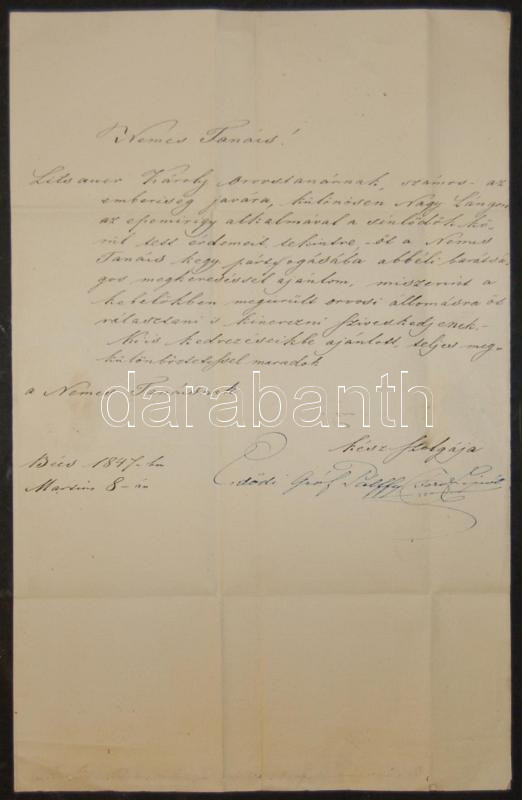 Nemes Tanács!
Litsauer Károly Orvostanárnak, számos - az
emberiség javara, különösen Nagy Lángon
az epemirigy alkalmával a sinlödök kö-
rül tett erdemeit tekintve, öt a Nemes
Tanács kegy pártfogásába abbéli baráts-
ágos megkereséssel ajánlom, miszerint a
kebelökben megürült orvosi állomásra öt
választani s kinevezni sziveskedjenek -
Ki is kedvezéseikbe ajánlott, teljes meg-
különböztetéssel maradok
a Nemes Tanácsnak
darabanth
kész szolgája
Bécs 1847-be
Martius 8-án
Erdödi Gróf Pálffy